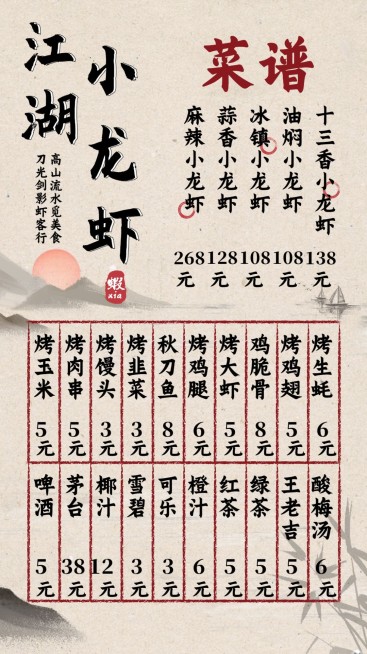 江湖
小龙虾
高山流水觅美食
刀光剑影虾客行
蝦
xia
菜谱
十三香小龙虾
138元
油焖小龙虾
108元
冰镇小龙虾
108元
蒜香小龙虾
128元
麻辣小龙虾
268元
烤玉米
5元
烤肉串
5元
烤馒头
3元
烤韭菜
3元
秋刀鱼
8元
烤鸡腿
6元
烤大虾
5元
鸡脆骨
8元
烤鸡翅
5元
烤生蚝
6元
啤酒
5元
茅台
38元
椰汁
12元
雪碧
3元
可乐
3元
橙汁
6元
红茶
5元
绿茶
5元
王老吉
5元
酸梅汤
6元